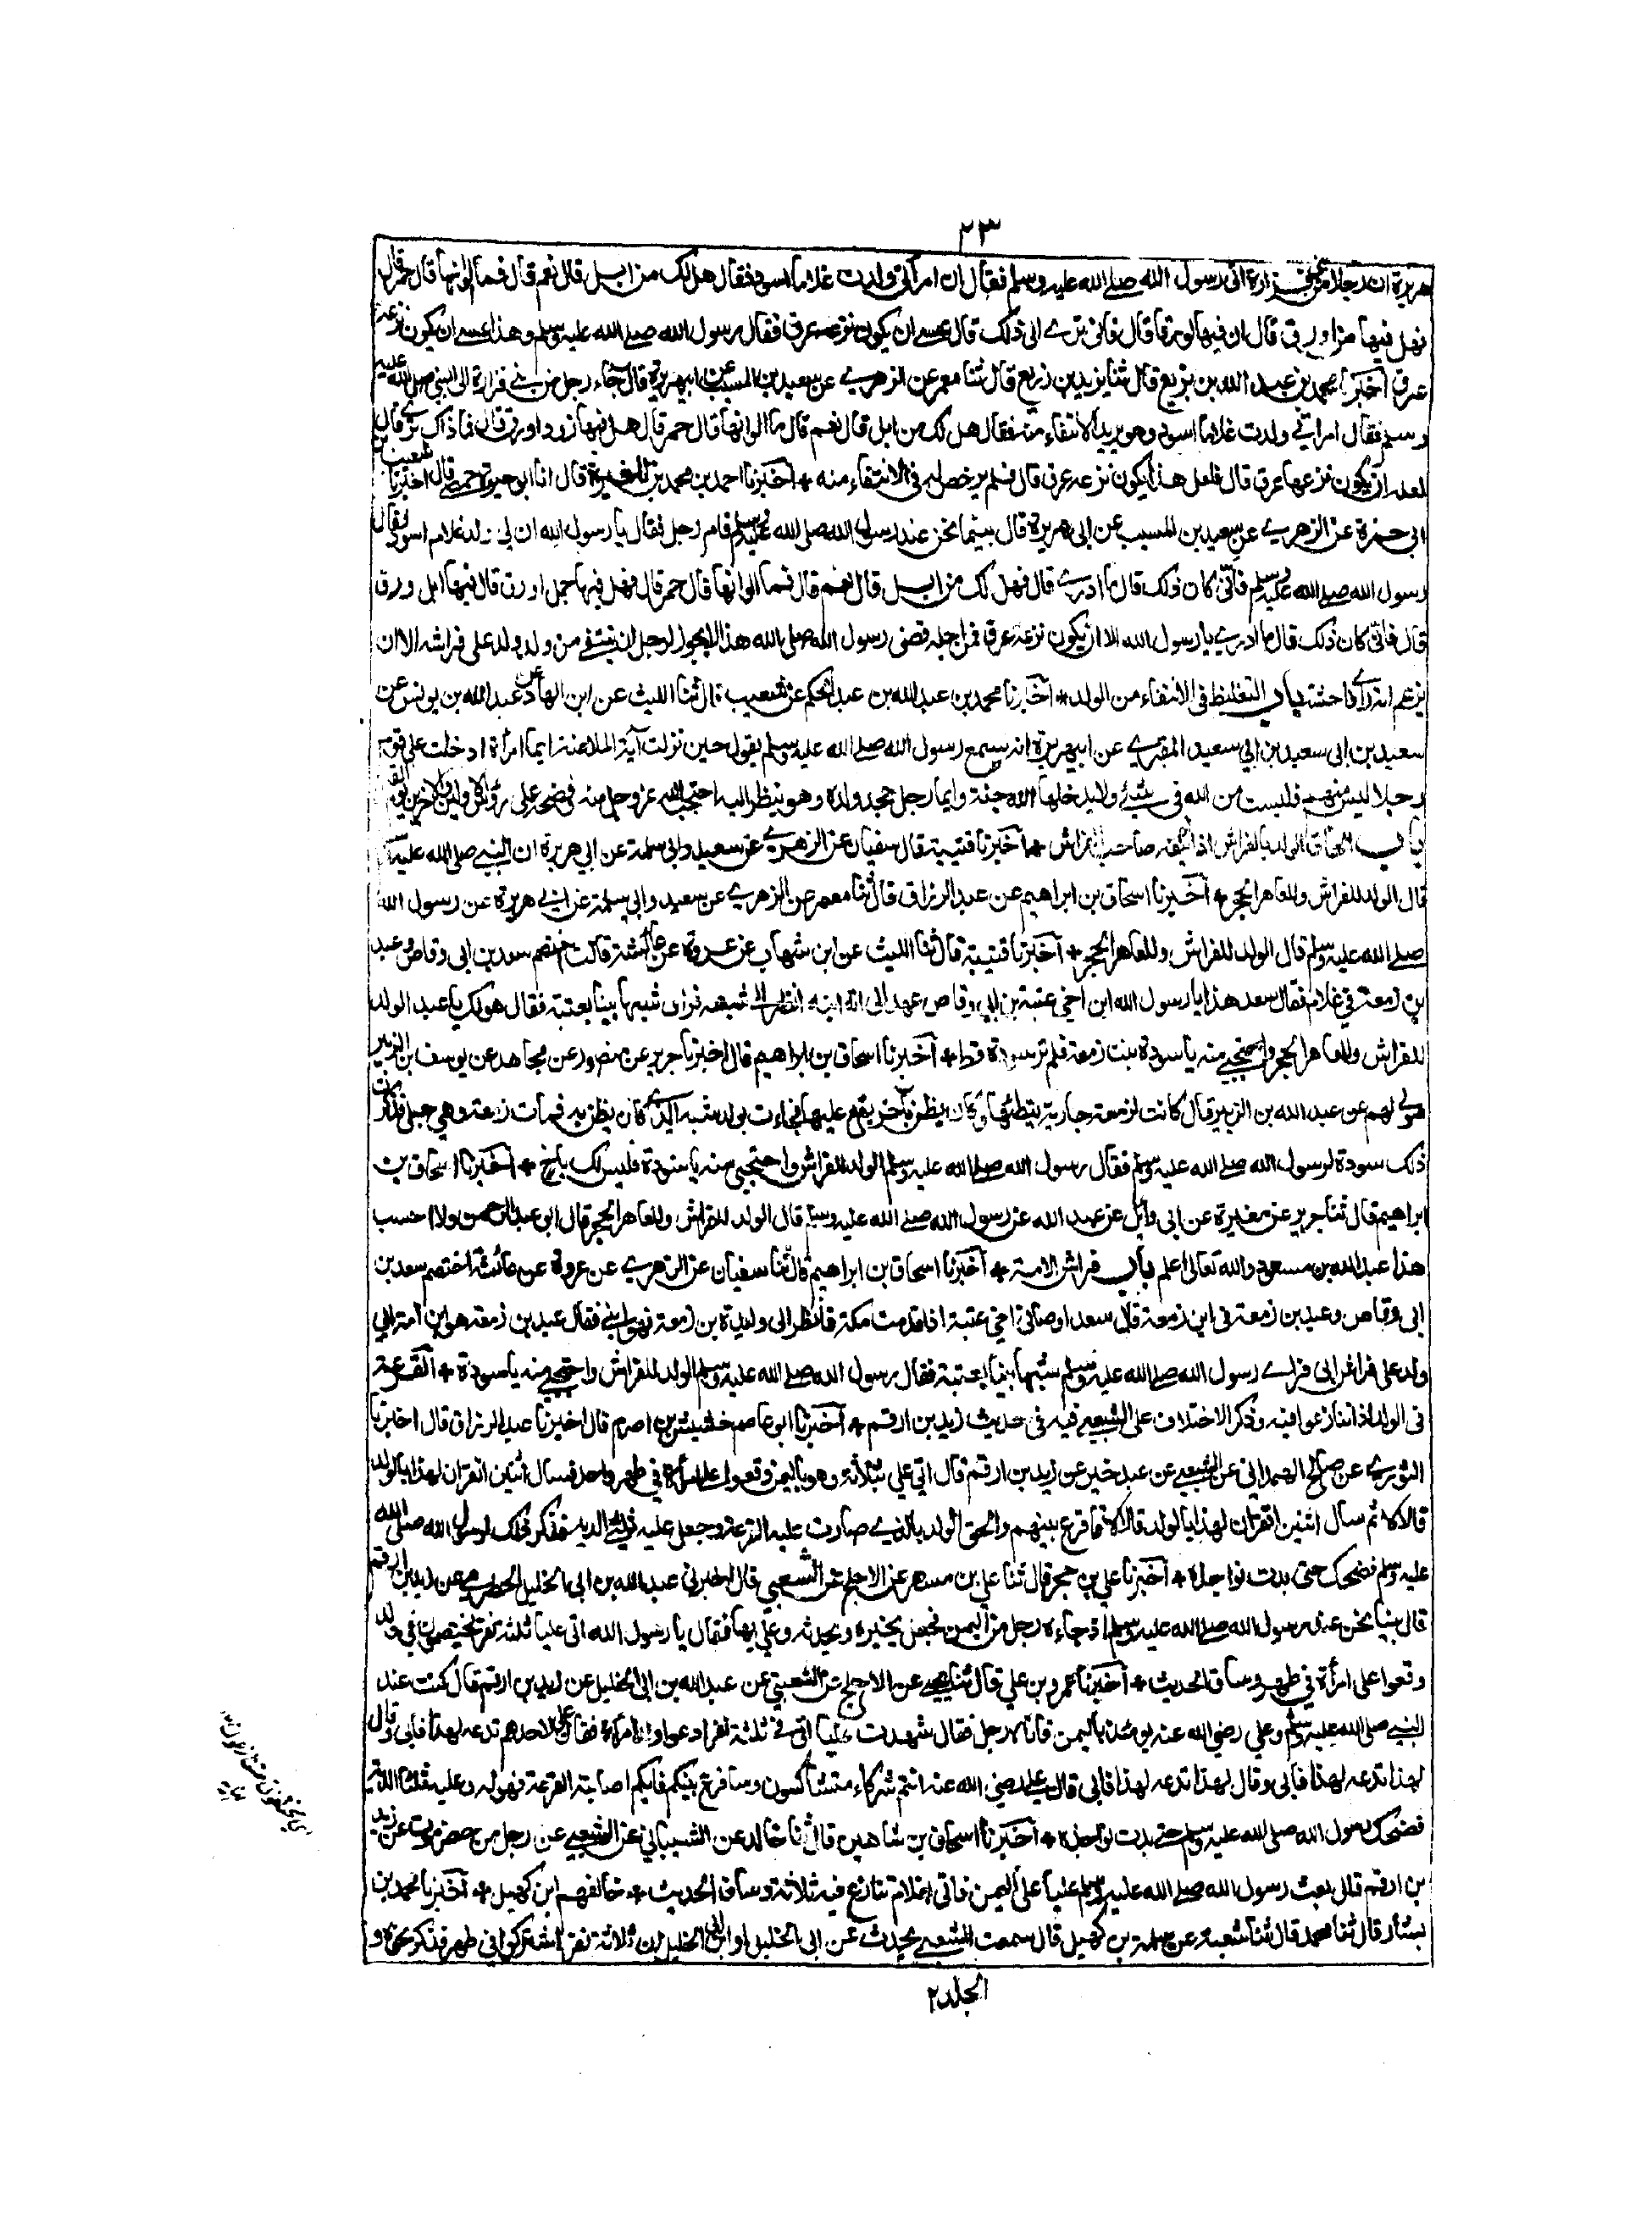 ٢٣
هريرة ان رجلا من بنى فزارة اتى رسول الله صلے الله عليه وسلم فقال ان امرأتى ولدت غلاما اسود فقال هل لك من ابل قال نعم قال فما الوانها قال حمر قال
فهل فيها من اورق قال ان فيها لورقا قال فانى ترے اتى ذلك قال عسے ان يكون نزعه عرق فقال رسول الله صلے الله عليه وسلم وهذا عسے ان يكون نزعه
عرق اخبرنا محمد بن عبد الله بن بزيع قال ثنا يزيد بن زريع قال ثنا معمر عن الزهرے عن سعيد بن المسيب عن ابيهريرة قال جاء رجل من بنے فزارة الى النبي صلى الله عليه
وسلم فقال امراتے ولدت غلاما اسود وهو يريد الانتفاء منه فقال هل لك من ابل قال نعم قال ما الوانها قال حمر قال هل فيها ذود اورق قال فما ذاك ترے قال
لعله ان يكون نزعها عرق قال فلعل هذا يكون نزعه عرق قال فلم يرخص له فى الانتفاء منه * اخبرنا احمد بن محمد بن المغيرة قال انا ابو حيوة حمصے قال اخبرنا شعيب بن
ابى حمزة عن الزهرے عن سعيد بن المسيب عن ابى هريرة قال بينما نحن عند رسول الله صلى الله عليه وسلم قام رجل فقال يا رسول الله ان لى ولد غلام اسود فقال
رسول الله صلے الله عليه وسلم فأنّى كان ذلك قال ما ادرے قال فهل لك من ابل قال نعم قال فما الوانها قال حمر قال فهل فيها جمل اورق قال فيها ابل ورق
قال فانّى كان ذلك قال ما ادرے يا رسول الله الا ان يكون نزعه عرق فمن اجله قضى رسول الله صلى الله هذا لا يجوز لرجل ان ينتفے من ولد ولد على فراشه الا ان
يزعم انه راے فاحشة باب التغليظ فى الانتفاء من الولد * اخبرنا محمد بن عبد الله بن عبد الحكم عن شعيب قال ثنا الليث عن ابن الهاد عن عبد الله بن يونس عن
سعيد بن ابى سعيد بن ابى سعيد المقبرے عن ابيهريرة انه سمع رسول الله صلے الله عليه وسلم يقول حين نزلت آية الملاعنة ايما امرأة ادخلت على قوم
رجلا ليس منهم فليست من الله فى شئے ولا يدخلها الله جنته وايما رجل جحد ولده وهو ينظر اليه احتجب الله عز وجل منه وفضحه على رؤس الاولين والاخرين يوم القيمة
باب الحاق الولد بالفراش اذا لم ينفه صاحب الفراش * اخبرنا قتيبة قال سفيان عن الزهرے عن سعيد وابى سلمة عن ابى هريرة ان النبے صلى الله عليه وسلم
قال الولد للفراش وللعاهر الحجر * اخبرنا اسحاق بن ابراهيم عن عبد الرزاق قال ثنا معمر عن الزهرے عن سعيد وابى سلمة عن ابى هريرة عن رسول الله
صلے الله عليه وسلم قال الولد للفراش وللعاهر الحجر * اخبرنا قتيبة قال ثنا الليث عن ابن شهاب عن عروة عن عائشة قالت اختصم سعد بن ابى وقاص وعبد
بن زمعة فى غلام فقال سعد هذا يا رسول الله ابن اخى عتبة بن ابى وقاص عهد الى انه ابنه انظر الى شبهه فراى شبها بينا بعتبة فقال هو لك يا عبد الولد
للفراش وللعاهر الحجر واحتجبے منه يا سودة بنت زمعة فلم تر سودة قط * اخبرنا اسحاق بن ابراهيم قال اخبرنا جرير عن منصور عن مجاهد عن يوسف بن الزبير
مولے لهم عن عبد الله بن الزبير قال كانت لزمعة جارية يتطئها وكان يظن بآخر يقع عليها فجاءت بولد شبه الذے كان يظن به فمات زمعة وهى حبلى فذكرت
ذلك سودة لرسول الله صلے الله عليه وسلم فقال رسول الله صلے الله عليه وسلم الولد للفراش واحتجبى منه يا سودة فليس لك باخ * اخبرنا اسحاق بن
ابراهيم قال ثنا جرير عن مغيرة عن ابى وائل عن عبد الله عن رسول الله صلے الله عليه وسلم قال الولد للفراش وللعاهر الحجر قال ابو عبد الرحمن ولا احسب
هذا عبد الله بن مسعود والله تعالى اعلم باب فراش الامة * اخبرنا اسحاق بن ابراهيم قال ثنا سفيان عن الزهرے عن عروة عن عائشة اختصم سعد بن
ابى وقاص وعبد بن زمعة فى ابن زمعة قال سعد اوصانى اخى عتبة اذا قدمت مكة فانظر الى وليدة بن زمعة فهو ابنے فقال عبد بن زمعة هو ابن امة ابى
ولد على فراش ابى فراے رسول الله صلے الله عليه وسلم شبها بينا بعتبة فقال رسول الله صلے الله عليه وسلم الولد للفراش واحتجبے منه يا سودة * القرعة
فى الولد اذا تنازعوا فيه وذكر الاختلاف على الشعبے فيه فى حديث زيد بن ارقم * اخبرنا ابو عاصم خشيش بن اصرم قال اخبرنا عبد الرزاق قال اخبرنا
الثورے عن صالح الهمدانى عن الشعبے عن عبد خير عن زيد بن ارقم قال اتى علي بثلاثة وهو باليمن وقعوا على امرأة فى طهر واحد فسال اثنين اتقران لهذا بالولد
قالا لا ثم سال اثنين اتقران لهذا بالولد قالا لا فاقرع بينهم والحق الولد بالذے صارت عليه القرعة وجعل عليه ثلثے الدية فذكر ذلك لرسول الله صلى الله
عليه وسلم فضحك حتى بدت نواجذه * اخبرنا على بن حجر قال ثنا على بن مسهر عن الاجلح عن الشعبي قال اخبرنى عبد الله بن ابى الخليل الحضرمے عن زيد بن ارقم
قال بينا نحن عند رسول الله صلے الله عليه وسلم اذ جاءه رجل من اليمن فجعل يخبره ويحدثه وعلى بها فقال يا رسول الله اتى عليا ثلثة نفر يختصمون فى ولد
وقعوا على امرأة فى طهر وساق الحديث * اخبرنا عمرو بن علي قال ثنا يحيے عن الاجلح عن الشعبي عن عبد الله بن ابى الخليل عن زيد بن ارقم قال كنت عند
النبے صلى الله عليه وسلم وعلي رضي الله عنه يومئذ باليمن فاتاه رجل فقال شهدت عليا اتى فى ثلثة نفر ادعوا ولد امرأة فقال على لاحدهم تدعه لهذا فابى وقال
لهذا تدعه لهذا فابى وقال لهذا تدعه لهذا فابى قال علے رضى الله عنه انتم شركاء متشاكسون وساقرع بينكم فايكم اصابته القرعة فهو له وعليه ثلثا الدية
فضحك رسول الله صلى الله عليه وسلم حتے بدت نواجذه * اخبرنا اسحاق بن شاهين قال ثنا خالد عن الشيبانى عن الشعبے عن رجل من حضرموت عن زيد
بن ارقم قال بعث رسول الله صلے الله عليه وسلم عليا على اليمن فاتى بغلام تنازع فيه ثلاثة وساق الحديث * خالفهم ابن كهيل * اخبرنا محمد بن
بشار قال ثنا محمد قال ثنا شعبة عن سلمة بن كهيل قال سمعت الشعبے يحدث عن ابى الخليل او ابن ابى الخليل ان ثلاثة نفر اشتركوا فى طهر فذكر نحوه و
الجلد٢